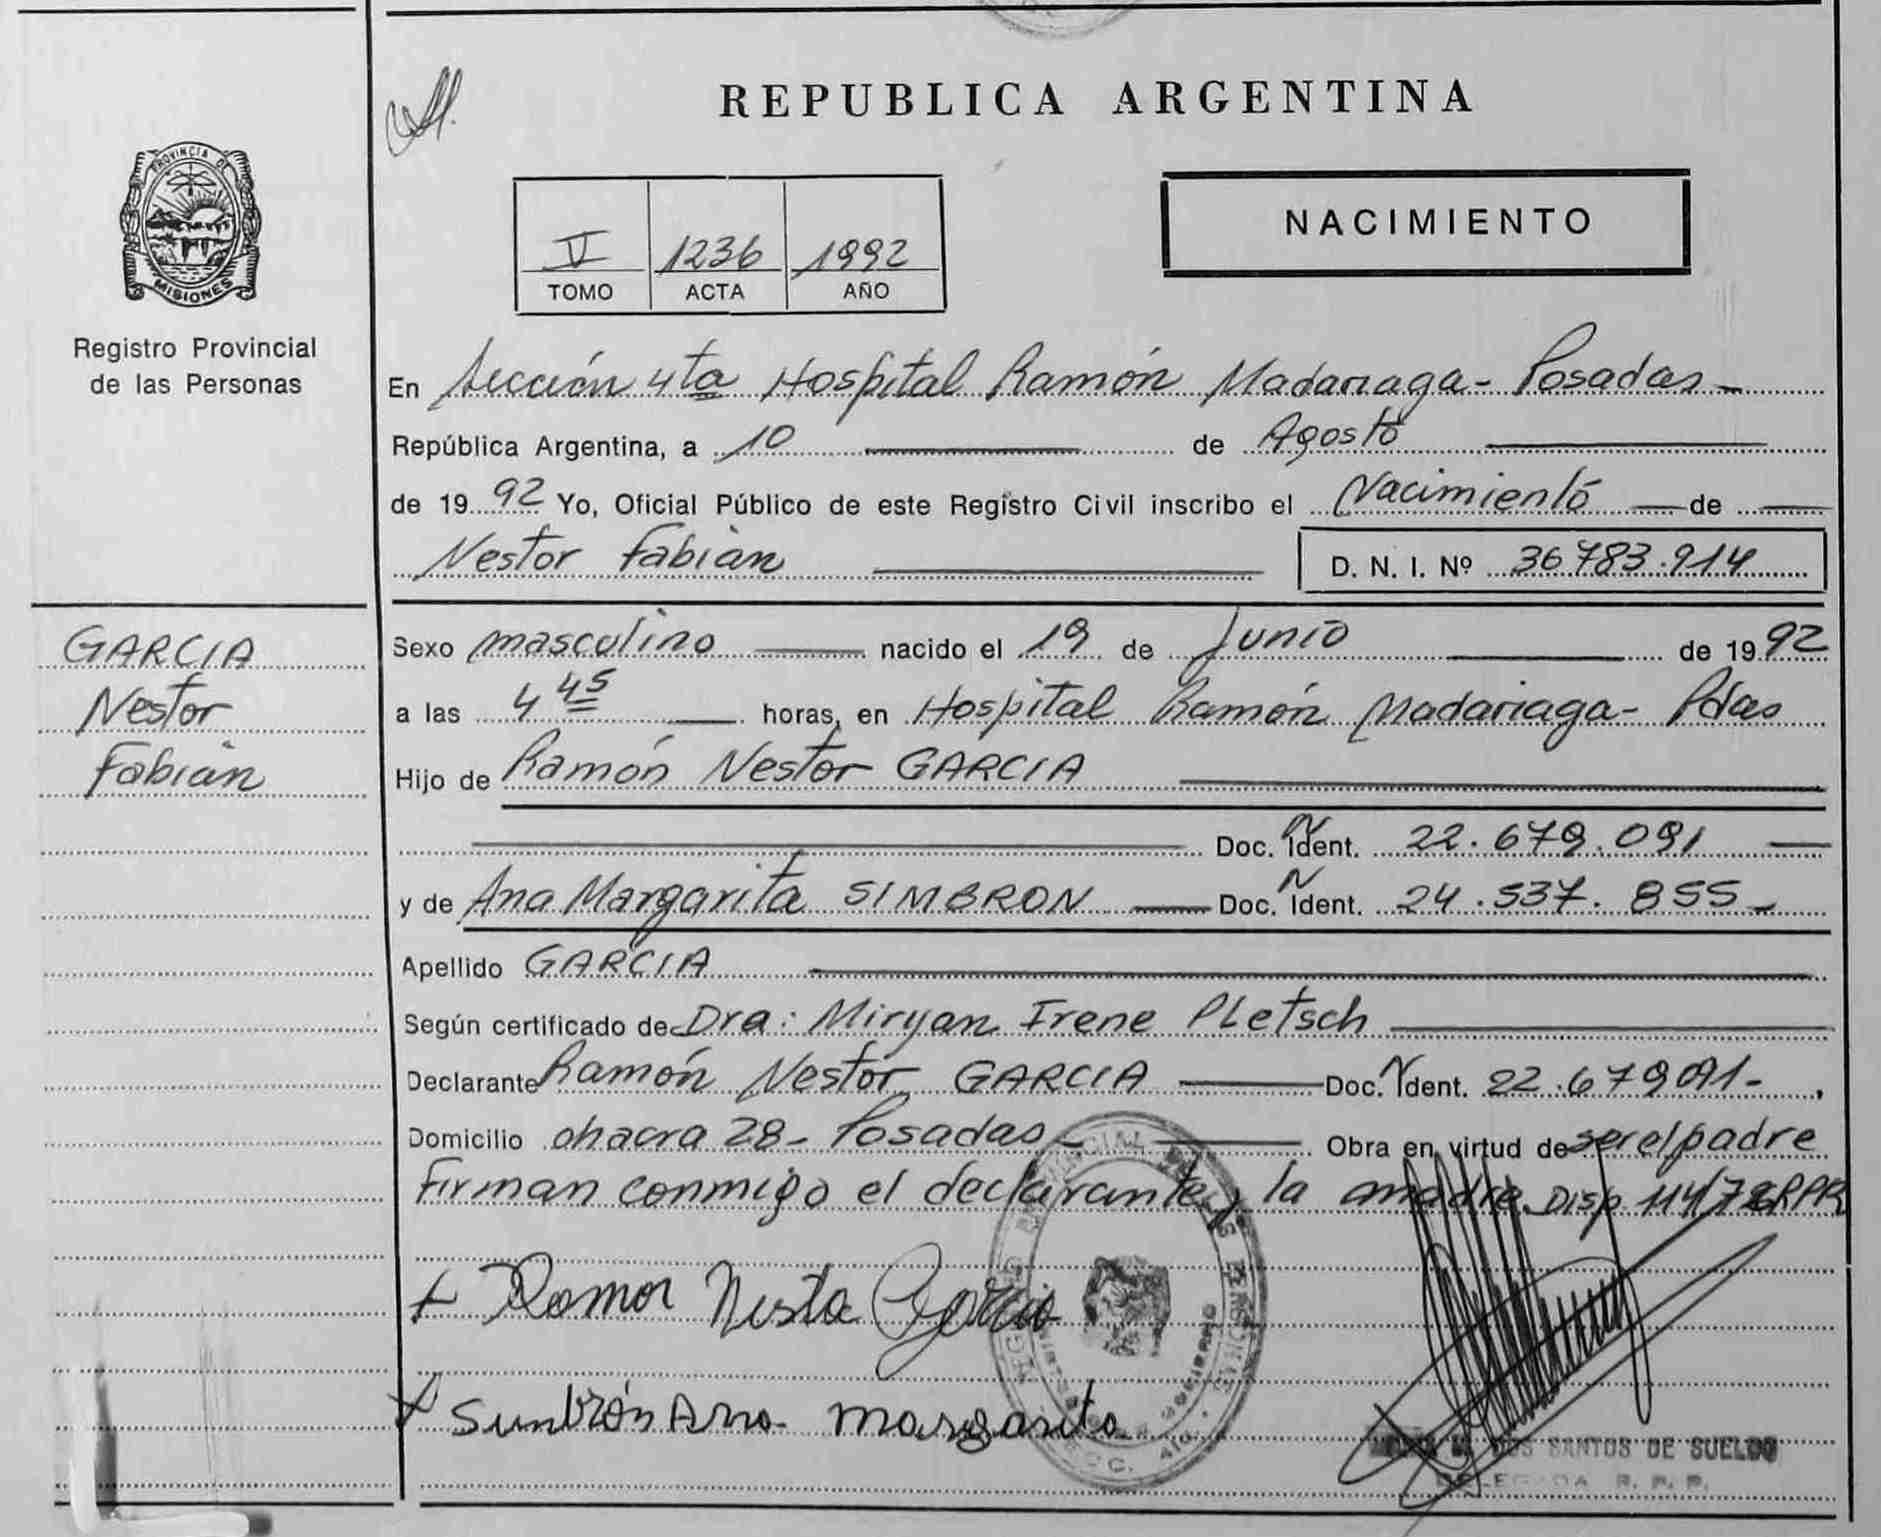 REPUBLICA ARGENTINA
PROVINCIA DE
MISIONES
Registro Provincial
de las Personas
V 1236 1992
TOMO ACTA AÑO
NACIMIENTO
En Sección 4ta Hospital Ramón Madariaga - Posadas -
República Argentina, a 10 de Agosto
de 1992 Yo, Oficial Público de este Registro Civil inscribo el Nacimiento de
Nestor Fabian D. N. I. Nº 36.783.914
GARCIA
Nestor
Fabian
Sexo masculino nacido el 19 de Junio de 1992
a las 4 45 horas, en Hospital Ramón Madariaga - Pdas
Hijo de Ramón Nestor GARCIA
Doc. N Ident. 22.679.091
y de Ana Margarita SIMBRON Doc. N Ident. 24.537.855 -
Apellido GARCIA
Según certificado de Dra: Miryan Irene PLetsch
Declarante Ramón Nestor GARCIA Doc. N Ident. 22.679091-,
Domicilio chacra 28 - Posadas - Obra en virtud de ser el padre
Firman conmigo el declarante y la madre. Disp. 114/78RPR
+ Ramon Nesto Garcia
+ Simbrón Ana Margarita
DOS SANTOS DE SUELDO
DELEGADA R. P. P.